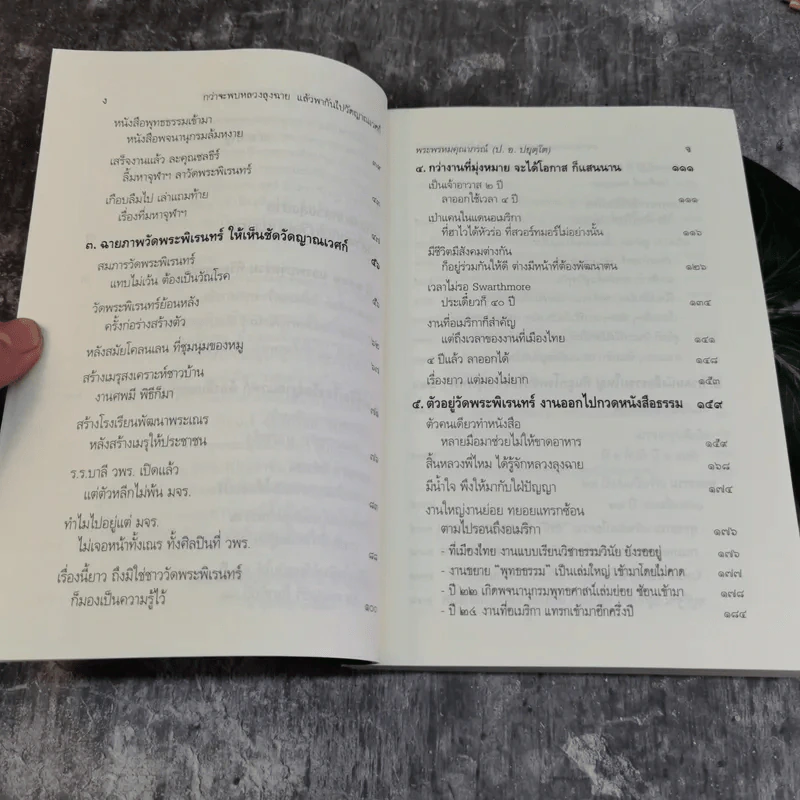 ง
กว่าจะพบหลวงลุงฉาย แล้วพากันไปวัดญาณเวศก์
หนังสือพุทธธรรมเข้ามา
หนังสือพจนานุกรมล้มหงาย
เสร็จงานแล้ว ละคุณชลธีร์
ลิ้มหาจุฬาฯ ลาวัดพระพิเรนทร์
เกือบลืมไป เล่าแถมท้าย
เรื่องที่มหาจุฬาฯ
๓. ฉายภาพวัดพระพิเรนทร์ ให้เห็นชัดวัดญาณเวศก์ ๕๖
สมภารวัดพระพิเรนทร์
แทบไม่เว้น ต้องเป็นวัณโรค ๕๖
วัดพระพิเรนทร์ย้อนหลัง
ครั้งก่อร่างสร้างตัว ๖๒
หลังสมัยโคลนเลน ที่ชุมนุมของหมู ๖๗
สร้างเมรุสงเคราะห์ชาวบ้าน
งานศพมี พิธีก็มา
สร้างโรงเรียนพัฒนาพระเณร
หลังสร้างเมรุให้ประชาชน ๗๖
ร.ร.บาลี วพร. เปิดแล้ว
แต่ตัวหลีกไม่พ้น มจร. ๘๓
ทำไมไปอยู่แต่ มจร.
ไม่เจอหน้าทั้งเณร ทั้งศิลปินที่ วพร. ๘๘
เรื่องนี้ยาว ถึงมิใช่ชาววัดพระพิเรนทร์
ก็มองเป็นความรู้ไว้ ๑๐๐
พระพรหมคุณาภรณ์ (ป. อ. ปยุตฺโต) จ
๔. กว่างานที่มุ่งหมาย จะได้โอกาส ก็แสนนาน ๑๑๑
เป็นเจ้าอาวาส ๒ ปี
ลาออกใช้เวลา ๔ ปี ๑๑๑
เป่าแคนในแดนอเมริกา
ที่ฮาไวได้หัวร่อ ที่สวอร์ทมอร์ไม่อย่างนั้น ๑๑๖
มีชีวิตมีสังคมต่างกัน
ก็อยู่ร่วมกันให้ดี ต่างมีหน้าที่ต้องพัฒนาตน ๑๒๖
เวลาไม่รอ Swarthmore
ประเดี๋ยวก็ ๔๐ ปี ๑๓๔
งานที่อเมริกาก็สำคัญ
แต่ถึงเวลาของงานที่เมืองไทย ๑๔๑
๔ ปีแล้ว ลาออกได้ ๑๔๘
เรื่องยาว แต่มองไม่ยาก ๑๕๓
๕. ตัวอยู่วัดพระพิเรนทร์ งานออกไปกวดหนังสือธรรม ๑๕๙
ตัวคนเดียวทำหนังสือ
หลายมือมาช่วยไม่ให้ขาดอาหาร ๑๕๙
สิ้นหลวงพี่ไหม ได้รู้จักหลวงลุงฉาย ๑๖๘
มีน้ำใจ พึงให้มากับใฝ่ปัญญา ๑๗๔
งานใหญ่งานย่อย ทยอยแทรกซ้อน
ตามไปรอนถึงอเมริกา ๑๗๖
- ที่เมืองไทย งานแบบเรียนวิชาธรรมวินัย ยังรออยู่ ๑๗๖
- งานขยาย “พุทธธรรม” เป็นเล่มใหญ่ เข้ามาโดยไม่คาด ๑๗๗
- ปี ๒๒ เกิดพจนานุกรมพุทธศาสน์เล่มย่อย ซ้อนเข้ามา ๑๗๘
- ปี ๒๔ งานที่อเมริกา แทรกเข้ามาอีกครึ่งปี ๑๘๔